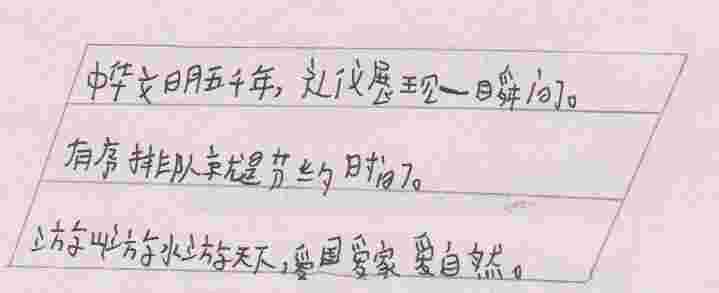 中华文明五千年,礼仪展现一瞬间。
有序排队就是节约时间。
游山游水游天下,爱国爱家爱自然。